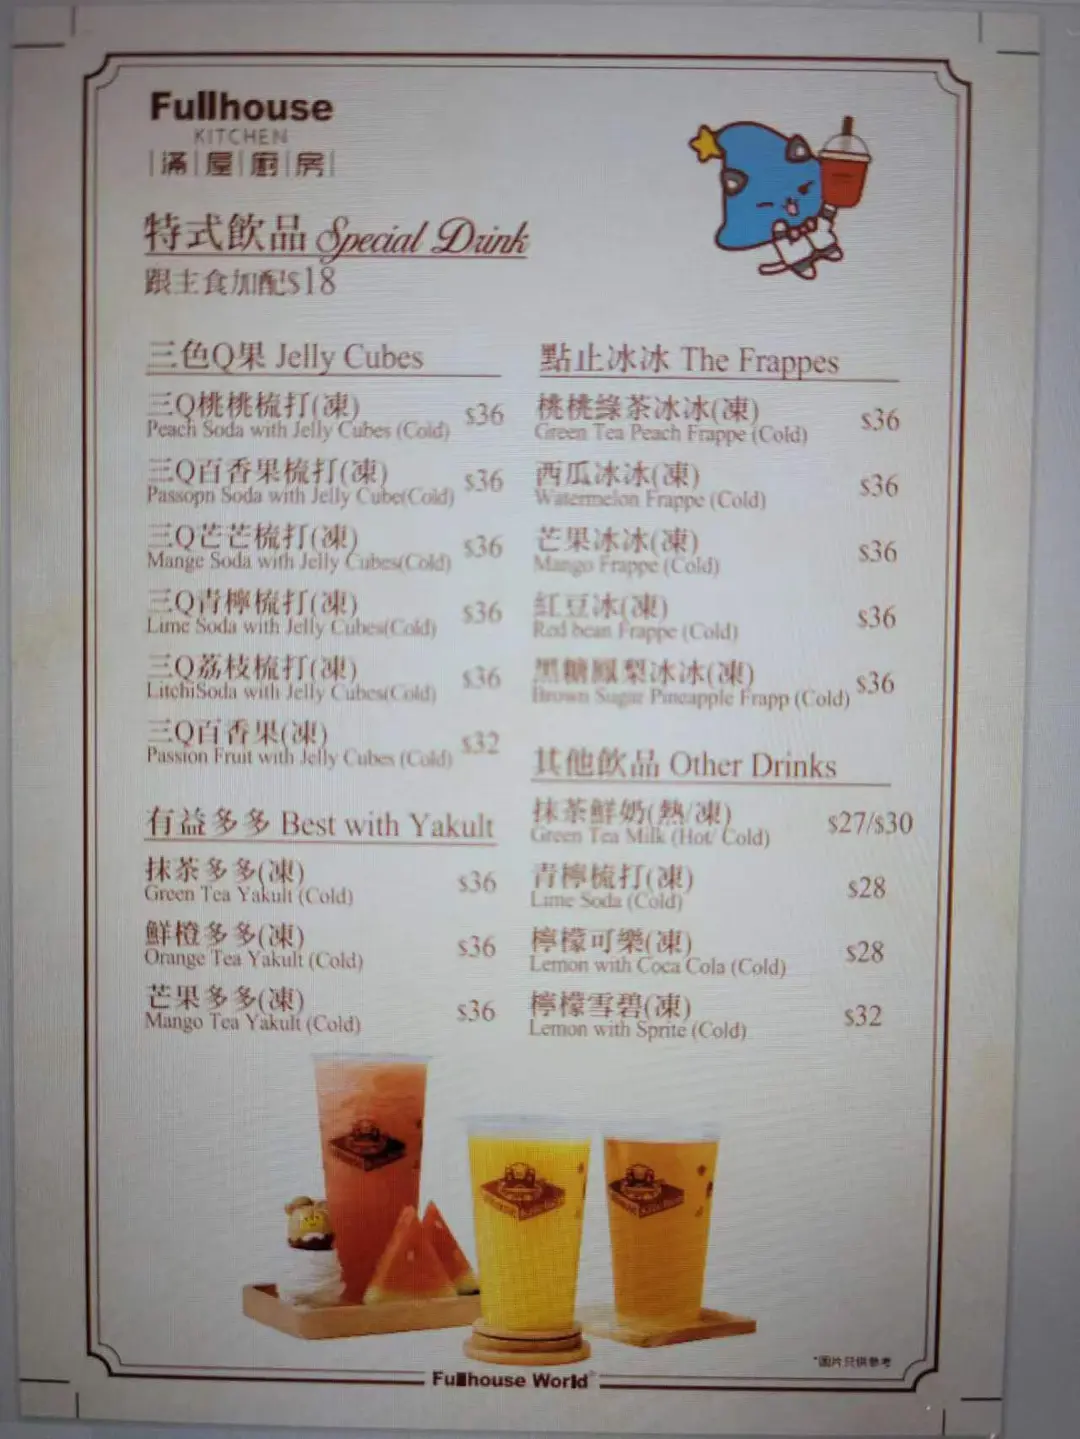 Fullhouse
KITCHEN
滿屋廚房
特式飲品 Special Drink
跟主食加配$18
三色Q果 Jelly Cubes
三Q桃桃梳打(凍) $36
Peach Soda with Jelly Cubes (Cold)
三Q百香果梳打(凍) $36
Passopn Soda with Jelly Cube(Cold)
三Q芒芒梳打(凍) $36
Mange Soda with Jelly Cubes(Cold)
三Q青檸梳打(凍) $36
Lime Soda with Jelly Cubes(Cold)
三Q荔枝梳打(凍) $36
LitchiSoda with Jelly Cubes(Cold)
三Q百香果(凍) $32
Passion Fruit with Jelly Cubes (Cold)
有益多多 Best with Yakult
抹茶多多(凍) $36
Green Tea Yakult (Cold)
鮮橙多多(凍) $36
Orange Tea Yakult (Cold)
芒果多多(凍) $36
Mango Tea Yakult (Cold)
點止冰冰 The Frappes
桃桃綠茶冰冰(凍) $36
Green Tea Peach Frappe (Cold)
西瓜冰冰(凍) $36
Watermelon Frappe (Cold)
芒果冰冰(凍) $36
Mango Frappe (Cold)
紅豆冰(凍) $36
Red bean Frappe (Cold)
黑糖鳳梨冰冰(凍) $36
Brown Sugar Pineapple Frapp (Cold)
其他飲品 Other Drinks
抹茶鮮奶(熱/凍) $27/$30
Green Tea Milk (Hot/ Cold)
青檸梳打(凍) $28
Lime Soda (Cold)
檸檬可樂(凍) $28
Lemon with Coca Cola (Cold)
檸檬雪碧(凍) $32
Lemon with Sprite (Cold)
*图片只供參考
Fullhouse World